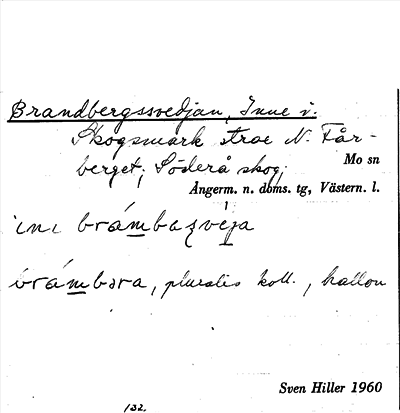 Brandbergssvedjan, Inne i.
Skogsmark strax N. Får-
berget; Söderå skog;
Mo sn
Ångerm. n. doms. tg, Västern. l.
ini brámbaʒvéja
brámbəra, pluralis koll., hallon
Sven Hiller 1960
132.